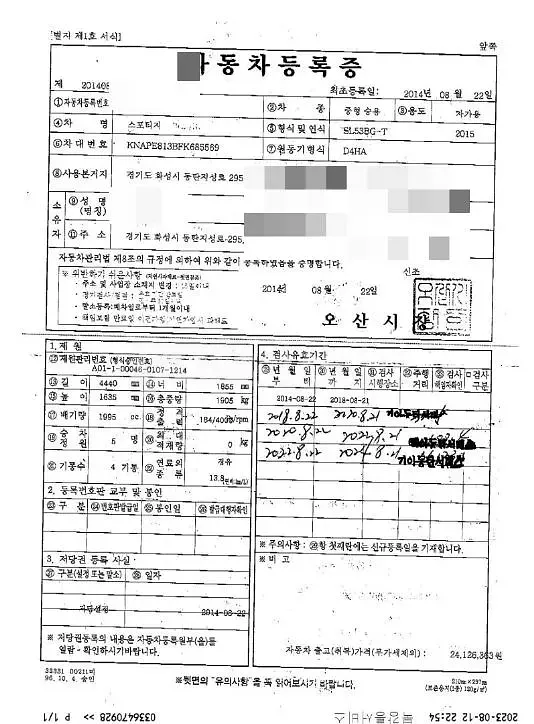 [별지 제1호 서식]
앞쪽
자동차등록증
제 201408
최초등록일: 2014년 08월 22일
①자동차등록번호
②차 종 중형 승용 ③용도 자가용
④차 명 스포티지
⑤형식 및 연식 SL53BG-T 2015
⑥차대번호 KNAPE813BFK685569
⑦원동기형식 D4HA
⑧사용본거지 경기도 화성시 동탄지성로 295
소유자
⑨성 명 (명칭)
⑪주 소 경기도 화성시 동탄지성로 295,
자동차관리법 제8조의 규정에 의하여 위와 같이 등록하였음을 증명합니다.
※ 위반하기 쉬운사항
신조
· 주소 및 사업장 소재지 변경 : 15일이내
2014년 08월 22일
· 말소등록:폐차일로부터 1개월이내
오 산 시 장
1. 제 원
⑫제원관리번호 (형식승인번호)
A01-1-00046-0107-1214
⑬길 이 4440 mm ⑭너 비 1855 mm
⑮높 이 1635 mm 총중량 1905 kg
배기량 1995 cc 정격출력 184/4000 ps/rpm
승차정원 5 명 최대적재량 0 kg
기통수 4 기통 연료의 종류 경유
13.8
2. 등록번호판 교부 및 봉인
구 분 번호판발급일 봉인일 발급대행자확인
3. 저당권 등록 사실
구분(설정 또는 말소) 일자
저당설정 2014-08-22
※ 저당권등록의 내용은 자동차등록원부(을)를
열람·확인하시기바랍니다.
4. 검사유효기간
년 월 일 부터 년 월 일 까지 검사 시행장소 주행 거리 검사 책임자확인 검사 구분
2014-08-22 2018-08-21
2018.8.22 2020.8.21
2020.8.22 2022.8.21
2022.8.22 2024.8.21
※ 주의사항 : 항 첫째란에는 신규등록일을 기재합니다.
※ 비 고
자동차 출고(취득)가격(부가세제외) : 24,126,363 원
33331-00211비
96. 10. 4. 승인
※뒷면의 "유의사항"을 꼭 읽어보시기 바랍니다.
210㎜×297㎜
(보존용지(2종) 120g/㎡)
2023-08-12 12:52:54
0336470928 >> P 1/1